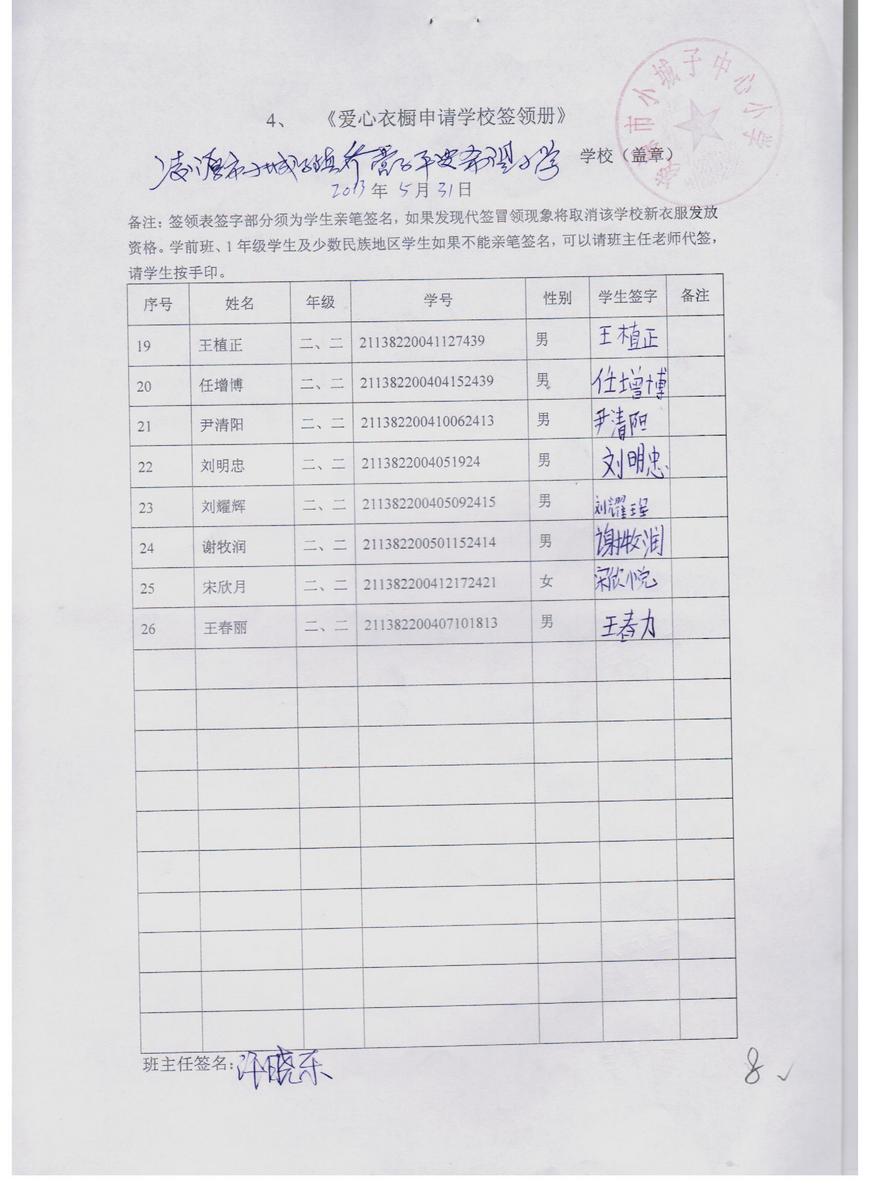 凌源市小城子中心小学
4、 《爱心衣橱申请学校签领册》
凌源市小城子镇乔营子平安希望小学 学校（盖章）
2013年5月31日
备注：签领表签字部分须为学生亲笔签名，如果发现代签冒领现象将取消该学校新衣服发放
资格。学前班、1年级学生及少数民族地区学生如果不能亲笔签名，可以请班主任老师代签，
请学生按手印。
序号 姓名 年级 学号 性别 学生签字 备注
19 王植正 二、二 21138220041127439 男 王植正
20 任增博 二、二 211382200404152439 男 任增博
21 尹清阳 二、二 211382200410062413 男 尹清阳
22 刘明忠 二、二 2113822004051924 男 刘明忠
23 刘耀辉 二、二 211382200405092415 男 刘耀
24 谢牧润 二、二 211382200501152414 男 谢牧润
25 宋欣月 二、二 211382200412172421 女 宋欣悦
26 王春丽 二、二 211382200407101813 男 王春力
班主任签名：许晓东
8 ✓